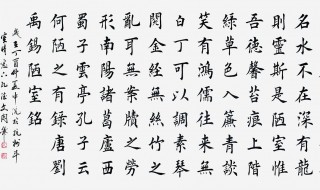 名水不在深有龍
則靈斯是陋室惟
吾德馨苔痕上階
綠草色入簾青談
笑有鴻儒往來無
白丁可以調素琴
閱金經無絲竹之
亂耳無案牘之勞
形南陽諸葛廬西
蜀子雲亭孔子云
何陋之有錄唐劉
禹錫陋室銘